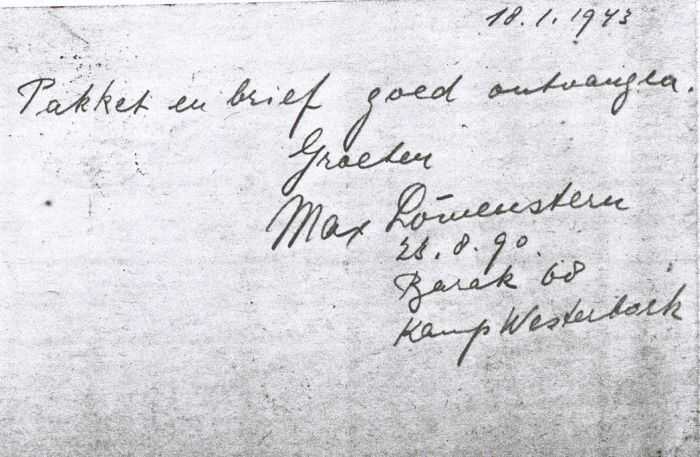 18.1.1943
Pakket en brief goed ontvangen.
Groeten
Max Löwenstern
28.8.90.
Barak 68
Kamp Westerbork